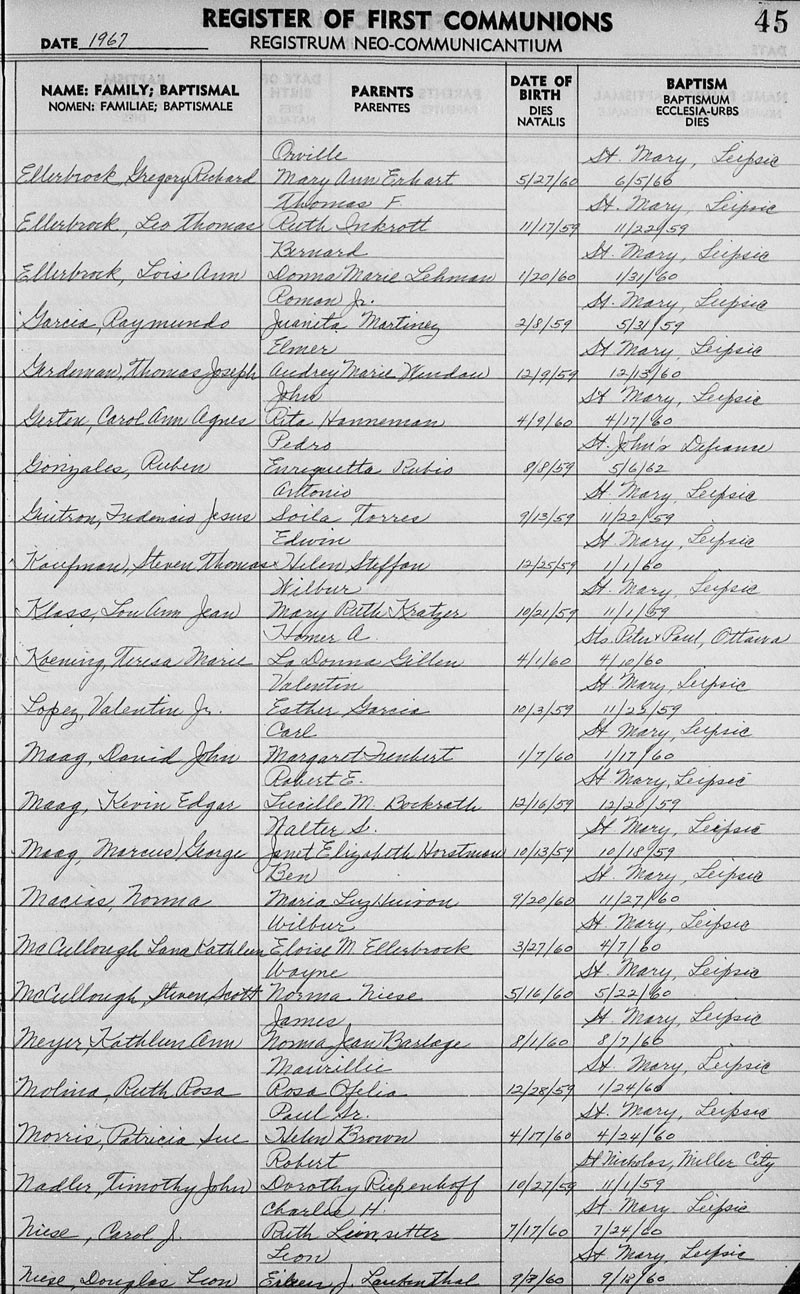 REGISTER OF FIRST COMMUNIONS 45
DATE 1967 REGISTRUM NEO-COMMUNICANTIUM
NAME: FAMILY; BAPTISMAL PARENTS DATE OF BIRTH BAPTISM
NOMEN: FAMILIAE; BAPTISMALE PARENTES DIES NATALIS BAPTISMUM ECCLESIA-URBS DIES
Orville St. Mary, Leipsic
Ellerbrock, Gregory Richard Mary Ann Erhart 5/27/60 6/5/60
Thomas F. St. Mary, Leipsic
Ellerbrock, Leo Thomas Ruth Inkrott 11/17/59 11/22/59
Bernard St. Mary, Leipsic
Ellerbrock, Lois Ann Donna Marie Lehman 1/20/60 1/31/60
Roman Jr. St. Mary, Leipsic
Garcia, Raymundo Juanita Martinez 2/8/59 5/31/59
Elmer St. Mary, Leipsic
Gerdeman, Thomas Joseph Audrey Marie Windau 12/9/59 12/13/60
John St. Mary, Leipsic
Gerten, Carol Ann Agnes Rita Hanneman 4/9/60 4/17/60
Pedro St. John's Defiance
Gonzales, Ruben Enriquetta Rubio 8/8/59 5/6/62
Antonio St. Mary, Leipsic
Jesus Soila Torres 9/13/59 11/22/59
Edwin St. Mary, Leipsic
Kaufman, Steven Thomas Helen Steffan 12/25/59 1/1/60
Wilbur St. Mary, Leipsic
Klass, Lou Ann Jean Mary Ruth Kratzer 10/21/59 11/1/59
Homer A. Sts. Peter & Paul, Ottawa
Koening, Teresa Marie La Donna Gillen 4/1/60 4/10/60
Valentin St. Mary, Leipsic
Lopez, Valentin Jr. Esther Garcia 10/3/59 11/25/59
Carl St. Mary, Leipsic
Maag, David John Margaret 1/7/60 1/17/60
Robert E. St. Mary, Leipsic
Maag, Kevin Edgar Lucille M. Bockrath 12/16/59 12/20/59
Walter S. St. Mary, Leipsic
Maag, Marcus George Janet Elizabeth Horstman 10/13/59 10/18/59
Ben St. Mary, Leipsic
Macias, Norma Maria Luz 9/20/60 11/27/60
Wilbur St. Mary, Leipsic
McCullough Lana Kathleen Eloise M. Ellerbrock 3/27/60 4/7/60
Wayne St. Mary, Leipsic
McCullough, Steven Scott Norma Niese 5/16/60 5/22/60
James St. Mary, Leipsic
Meyer, Kathleen Ann Norma Jean Barlage 8/1/60 8/7/60
St. Mary, Leipsic
Molina, Ruth Rosa Rosa Ofelia 12/28/59 1/24/60
Paul Sr. St. Mary, Leipsic
Morris, Patricia Sue Helen Brown 4/17/60 4/24/60
Robert St. Nicholas, Miller City
Nadler, Timothy John Dorothy Riepenhoff 10/27/59 11/1/59
Charles H. St. Mary Leipsic
Niese, Carol J. Ruth 7/17/60 7/24/60
Leon St. Mary, Leipsic
Niese, Douglas Leon Eileen J. Laubenthal 9/60 9/18/60